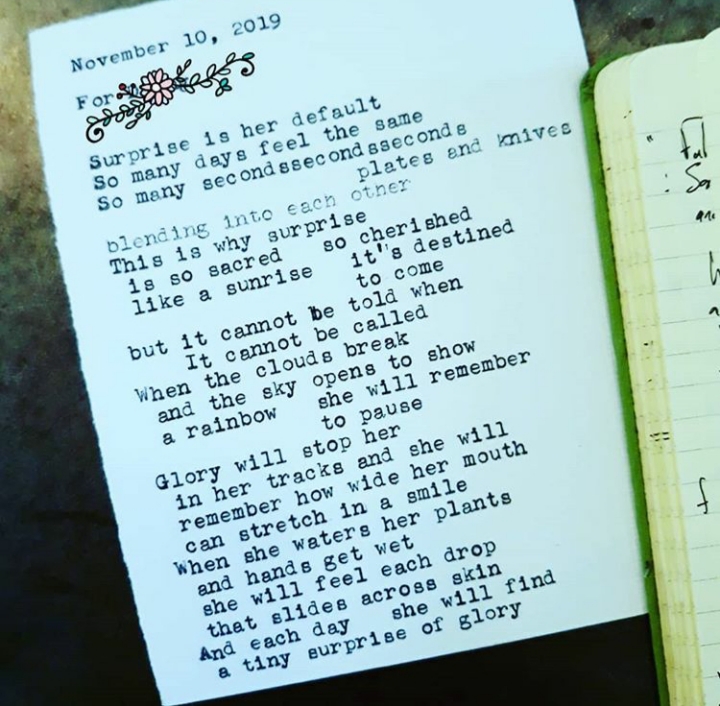 November 10, 2019
For
Surprise is her default
So many days feel the same
So many secondssecondsseconds
plates and knives
blending into each other
This is why surprise
is so sacred so cherished
like a sunrise it's destined
to come
but it cannot be told when
It cannot be called
When the clouds break
and the sky opens to show
a rainbow she will remember
to pause
Glory will stop her
in her tracks and she will
remember how wide her mouth
can stretch in a smile
When she waters her plants
and hands get wet
she will feel each drop
that slides across skin
And each day she will find
a tiny surprise of glory